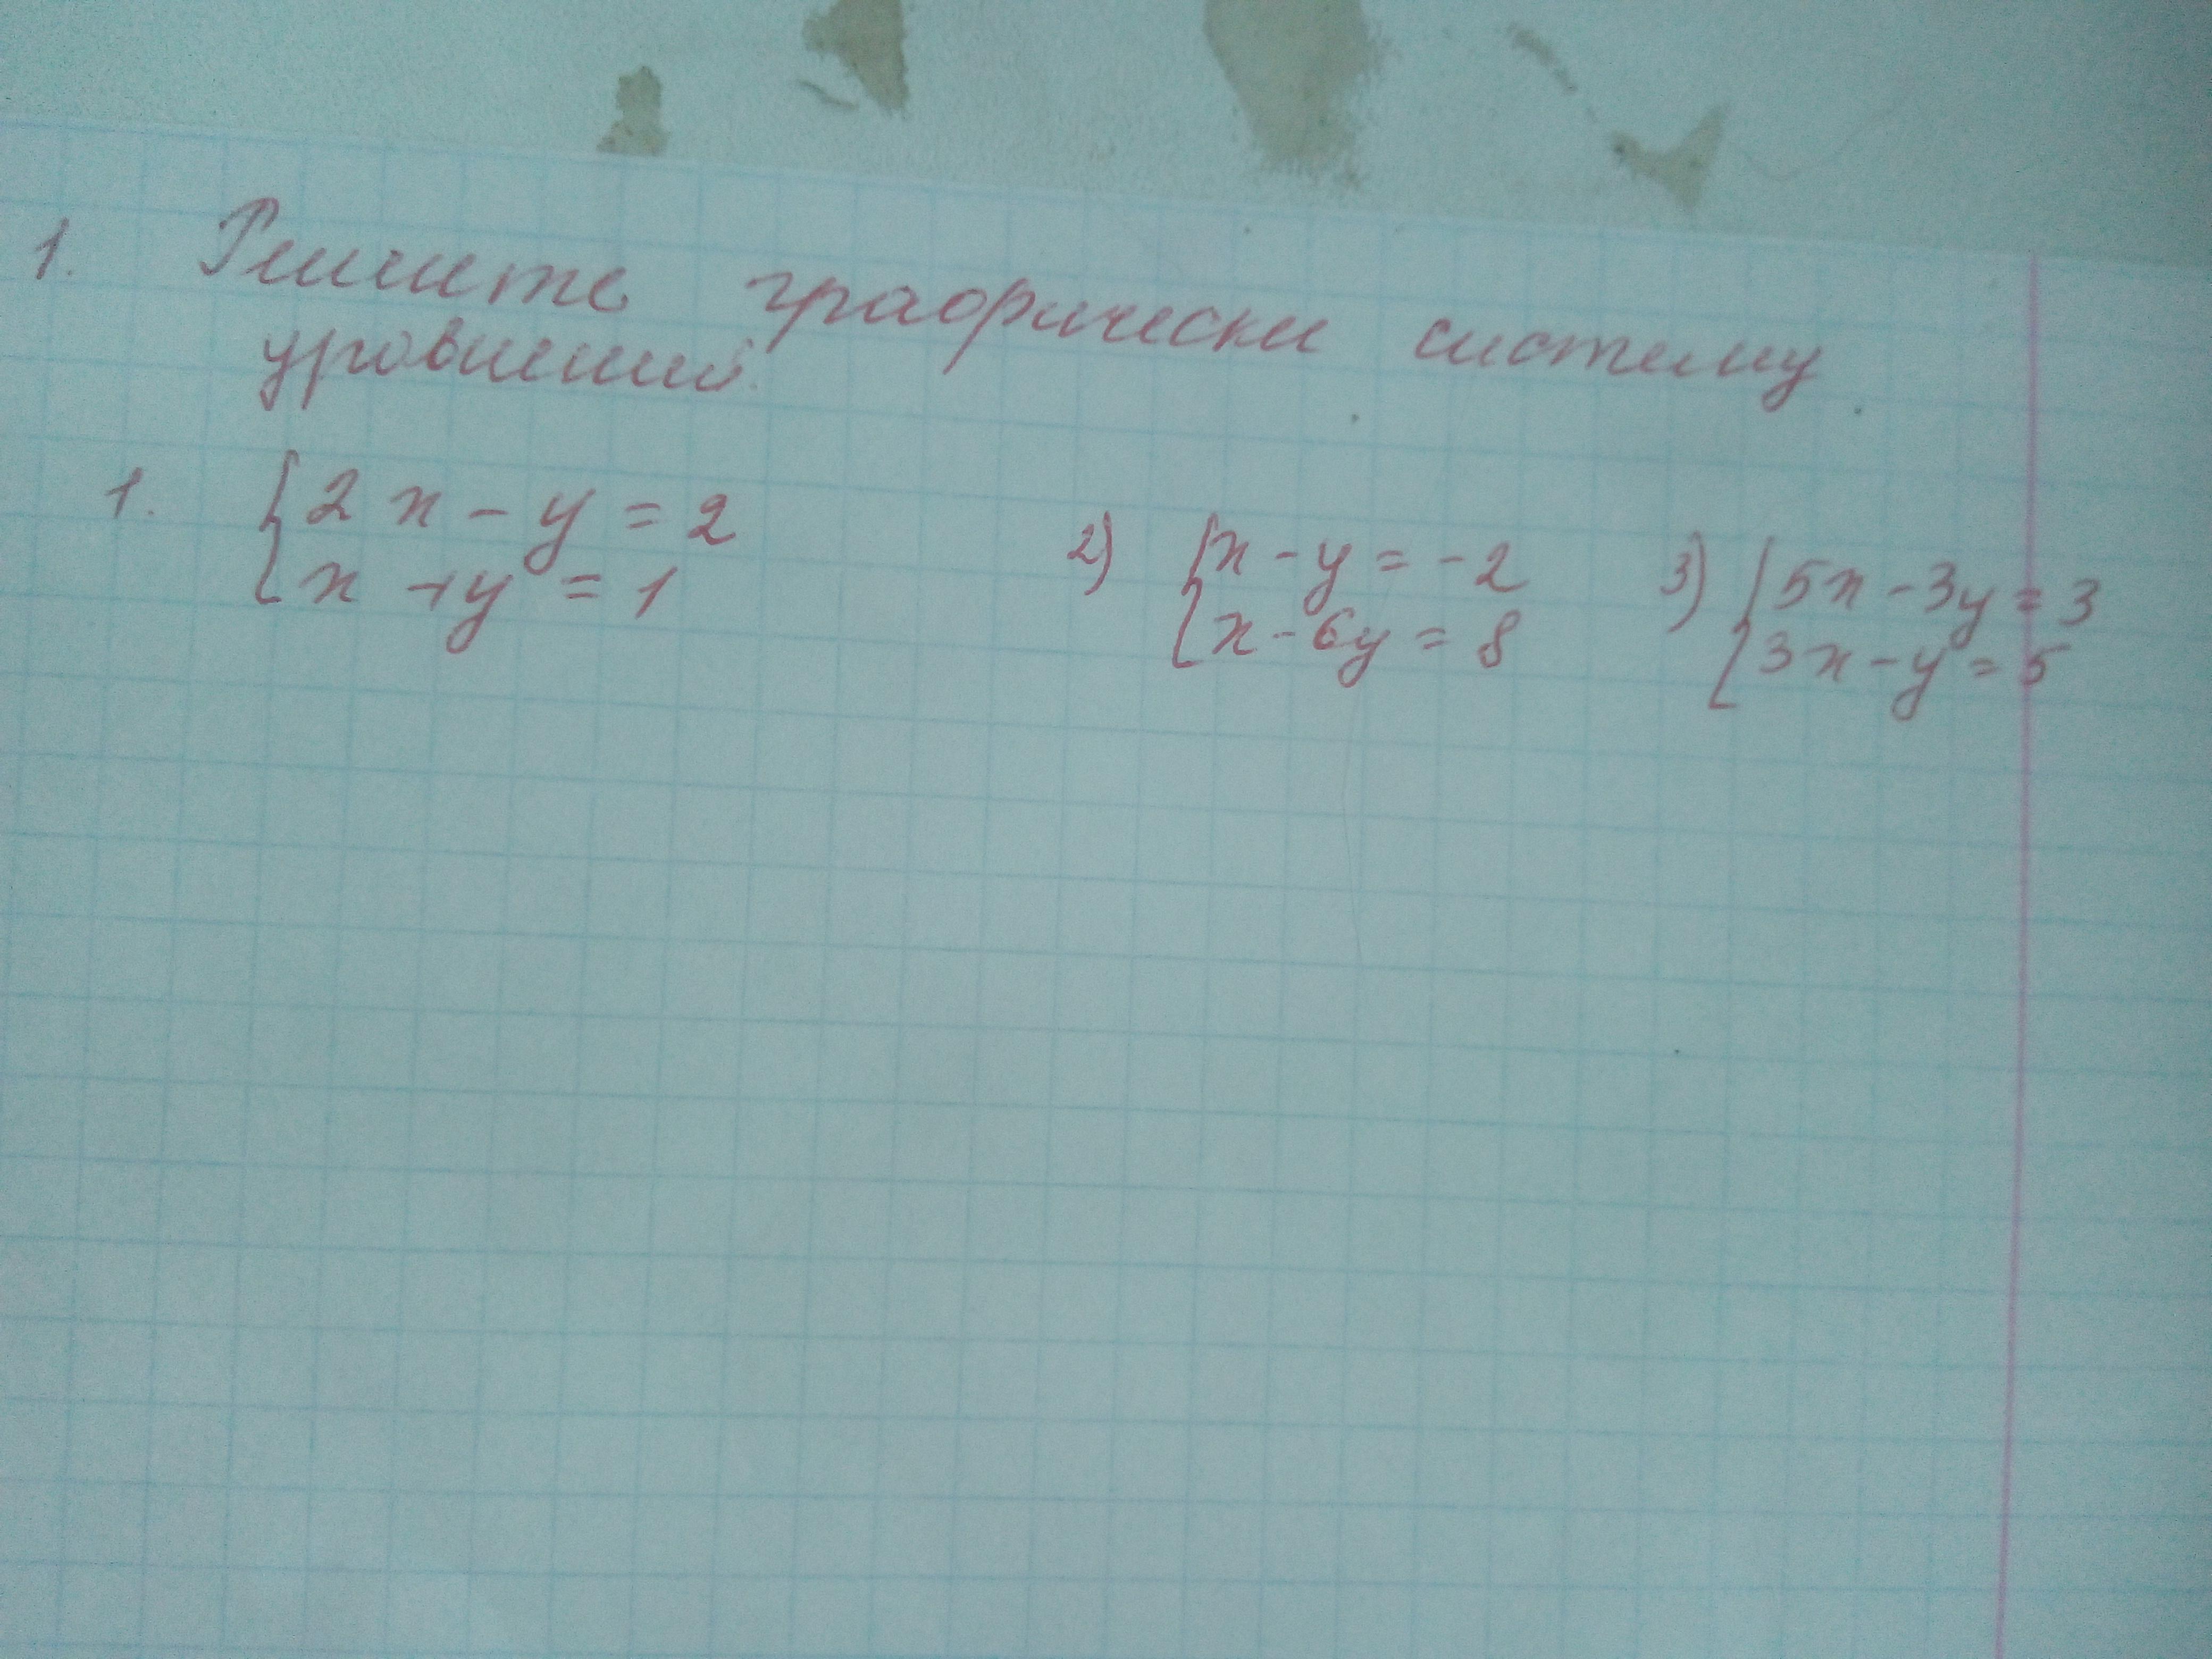 1. Решите графически систему
уровнений.
1. { 2x - y = 2
x + y = 1
2) { x - y = -2
x - 6y = 8
3) { 5x - 3y = 3
3x - y = 5